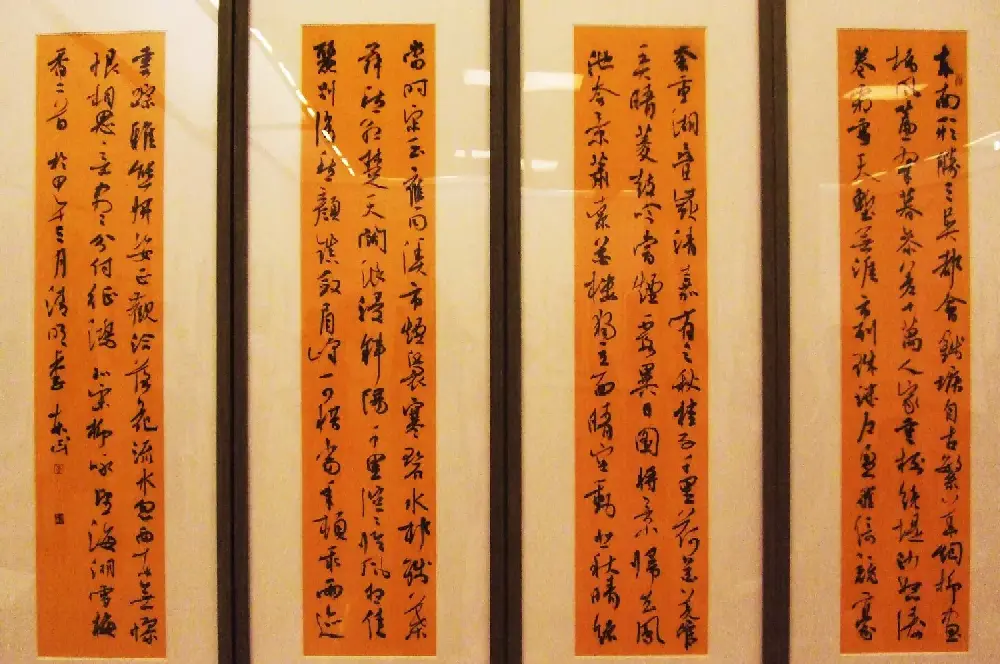 東南形勝三吳都會錢塘自古繁華煙柳畫
橋風簾翠幕參差十萬人家雲樹繞堤沙怒濤
卷霜雪天塹無涯市列珠璣户盈羅綺競豪
奢重湖疊巘清嘉有三秋桂子十里荷花羌管
弄晴菱歌吟賞煙霞異日圖將好景歸去鳳
池夸景蕭索危樓獨立面晴空動悲秋情緒
當時宋玉應同漁市孤煙裊寒碧水村殘葉
舞愁紅楚天闊浪浸斜陽千里溶溶臨風想佳
麗別後愁顏鎮斂眉峰可惜當年頓乖雨跡
雲蹤雅態妍姿正觀洽落花流水忽西東無憀
恨相思意盡分付征鴻北宋柳永望海潮雪梅
香二首於甲午三月清明